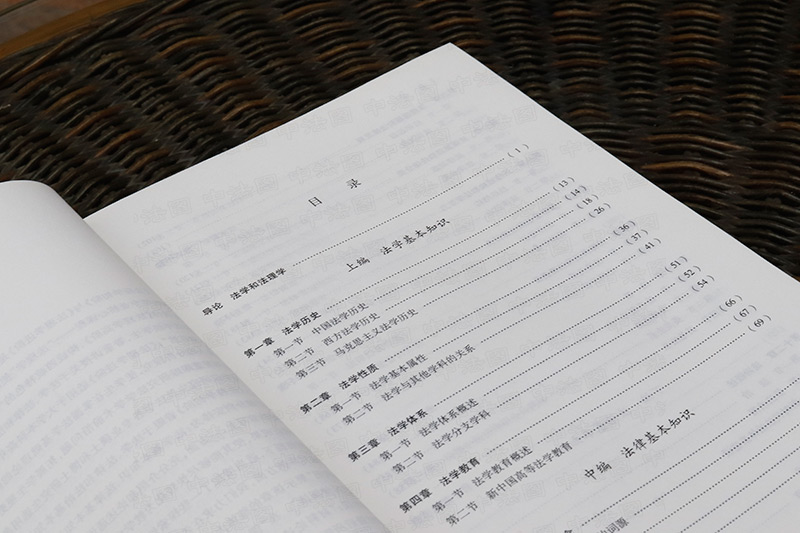 目 录
导论 法学和法理学 (1)
上编 法学基本知识
第一章 法学历史 (13)
第一节 中国法学历史 (14)
第二节 西方法学历史 (18)
第三节 马克思主义法学历史 (26)
第二章 法学性质 (36)
第一节 法学基本属性 (37)
第二节 法学与其他学科的关系 (41)
第三章 法学体系 (51)
第一节 法学体系概述 (52)
第二节 法学分支学科 (54)
第四章 法学教育 (66)
第一节 法学教育概述 (67)
第二节 新中国高等法学教育 (69)
中编 法律基本知识
的词源